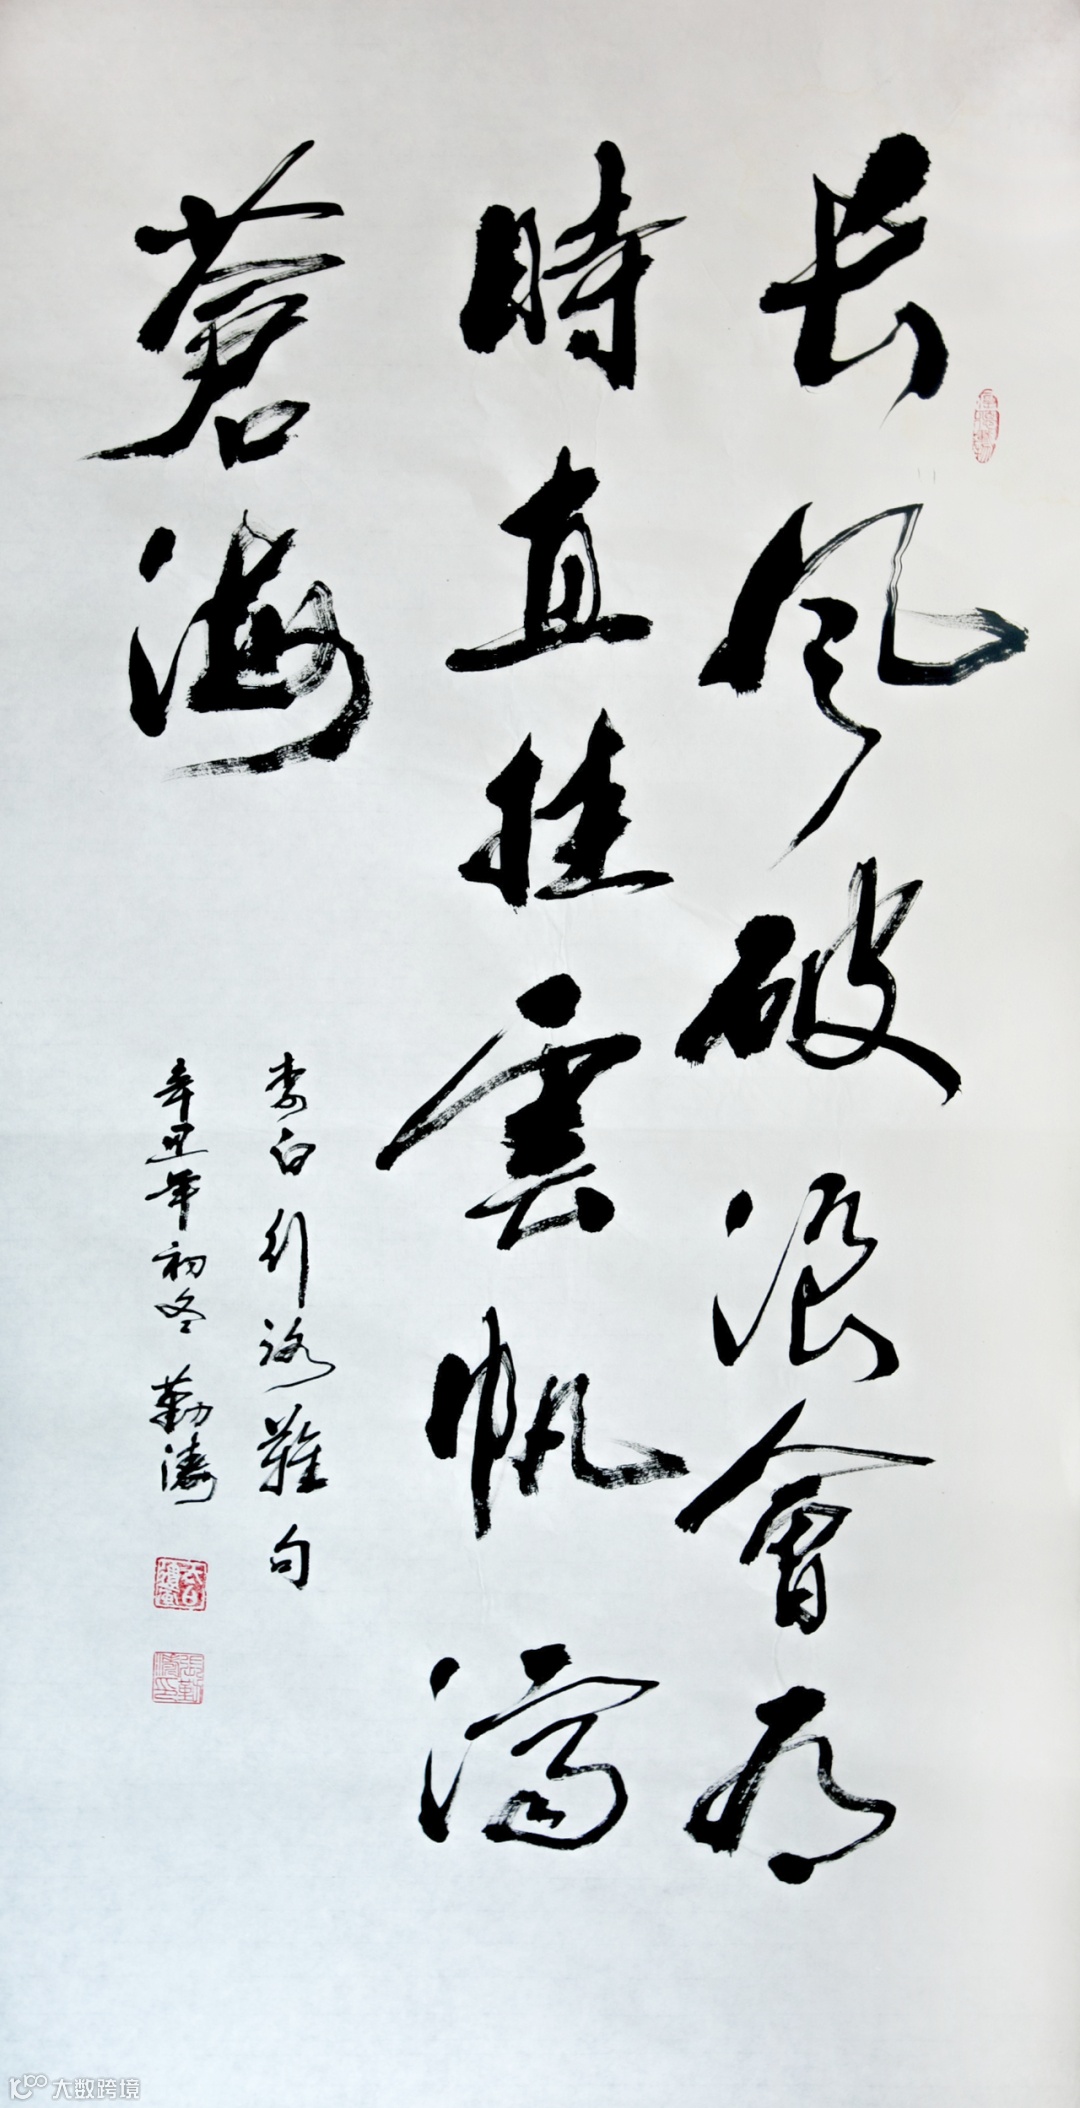 長风破浪會有
時直挂雲帆濟
蒼海
李白行路難句
辛丑年初冬 勤濤
大数跨境